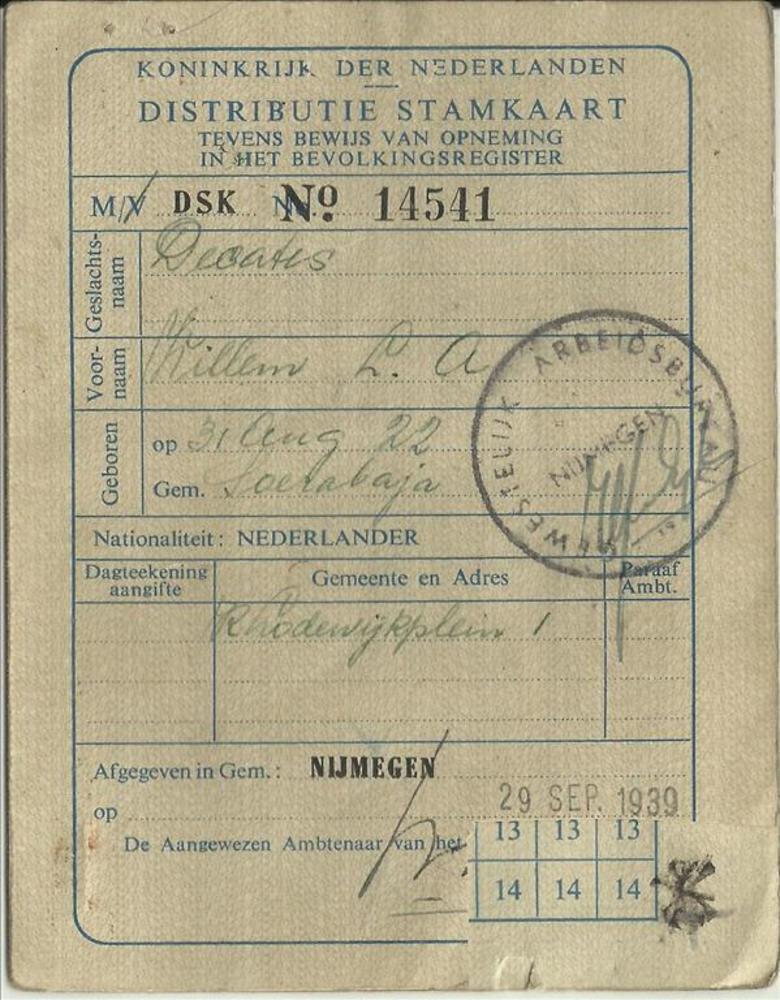 KONINKRIJK DER NEDERLANDEN
DISTRIBUTIE STAMKAART
TEVENS BEWIJS VAN OPNEMING
IN HET BEVOLKINGSREGISTER
M/V DSK No. 14541
Geslachts-
naam
Voor-
naam Willem L. A.
Geboren
op 31 Aug 22
Gem. Soerabaja
GEWESTELIJK ARBEIDSBUREAU
NIJMEGEN
Nationaliteit: NEDERLANDER
Dagteekening
aangifte
Gemeente en Adres
Paraaf
Ambt.
Rhodewijkplein 1
Afgegeven in Gem.: NIJMEGEN
op 29 SEP. 1939
De Aangewezen Ambtenaar van het
13 13 13
14 14 14